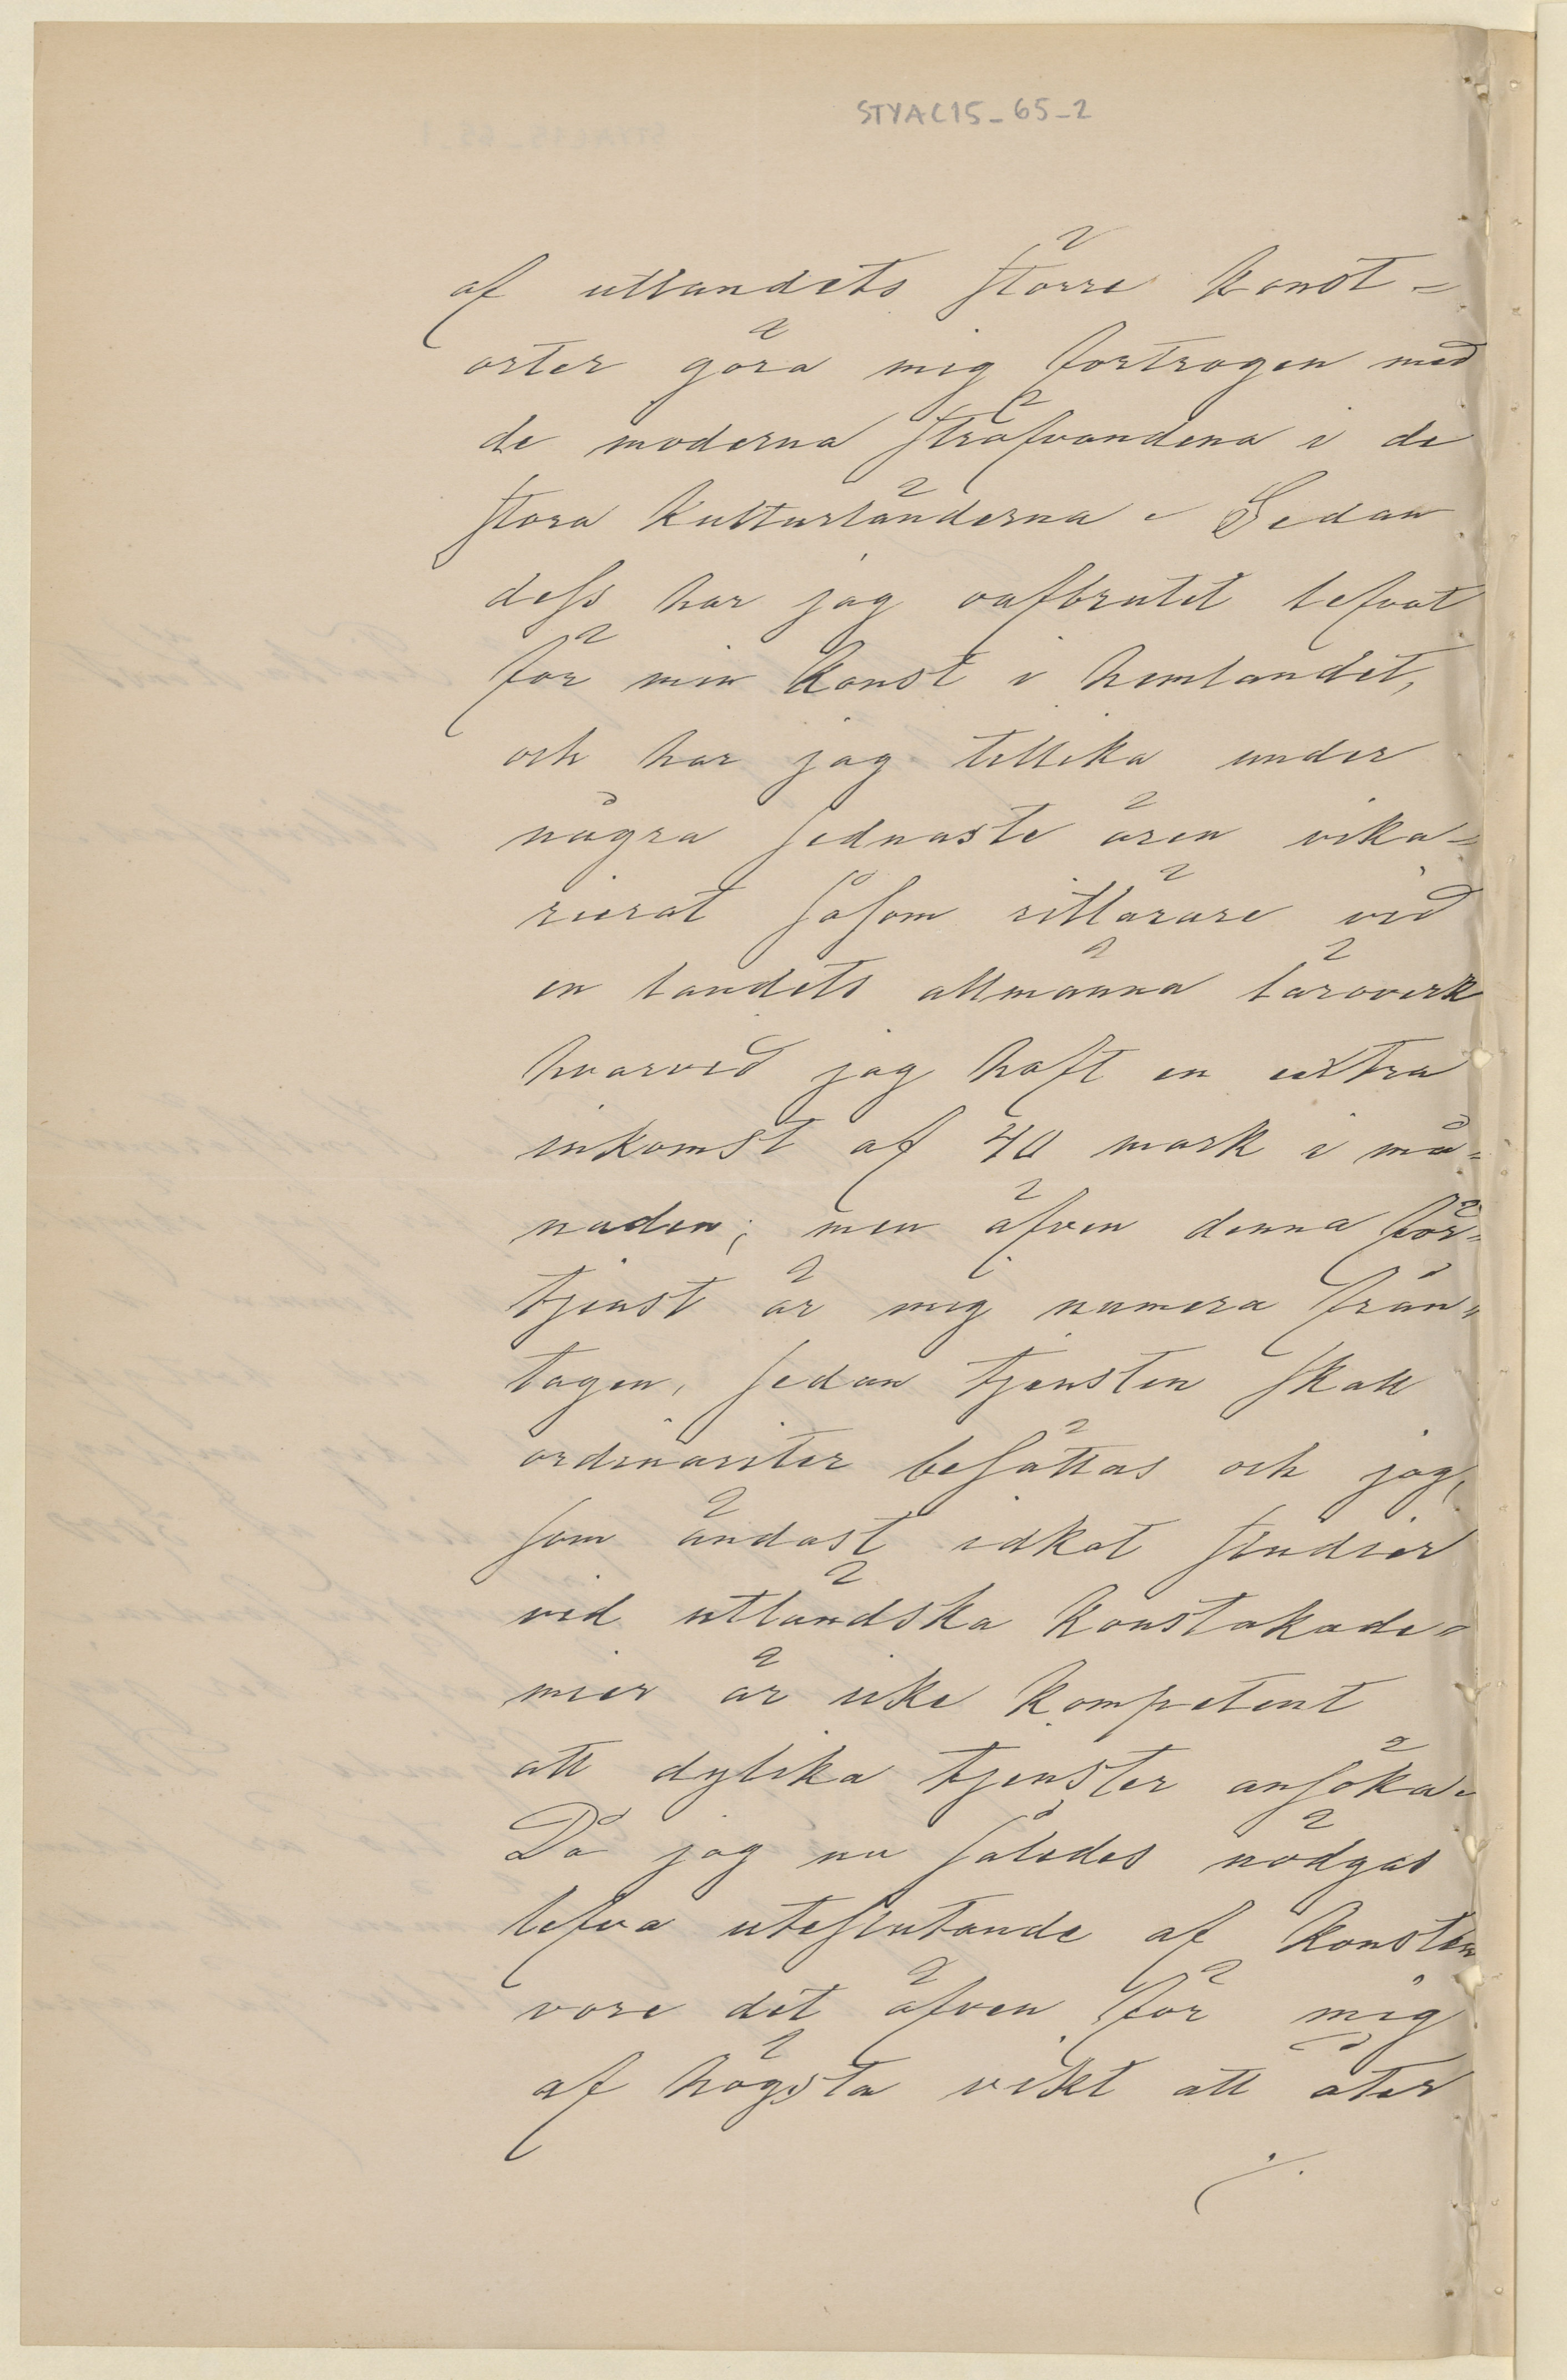 STYAC15_65_2
af utlandets större konst=
orter göra mig förtrogen med
de moderna sträfvandena i de
stora kulturländerna. Sedan
dess har jag oafbrutet lefvat
för min konst i hemlandet,
och har jag tillika under
några sednaste åren vika=
rierat såsom ritlärare vid
en landets allmänna läroverk
hvarvid jag haft en extra
inkomst af 40 mark i må=
naden; men äfven denna för=
tjenst är mig numera från=
tagen, sedan tjensten skall
ordinariter besättas och jag,
som endast idkat studier
vid utländska konstakade=
mier är icke kompetent
att dylika tjenster ansöka.
Då jag nu således nödgas
lefva uteslutande af konsten
vore det äfven för mig
af högsta vikt att åter
./.